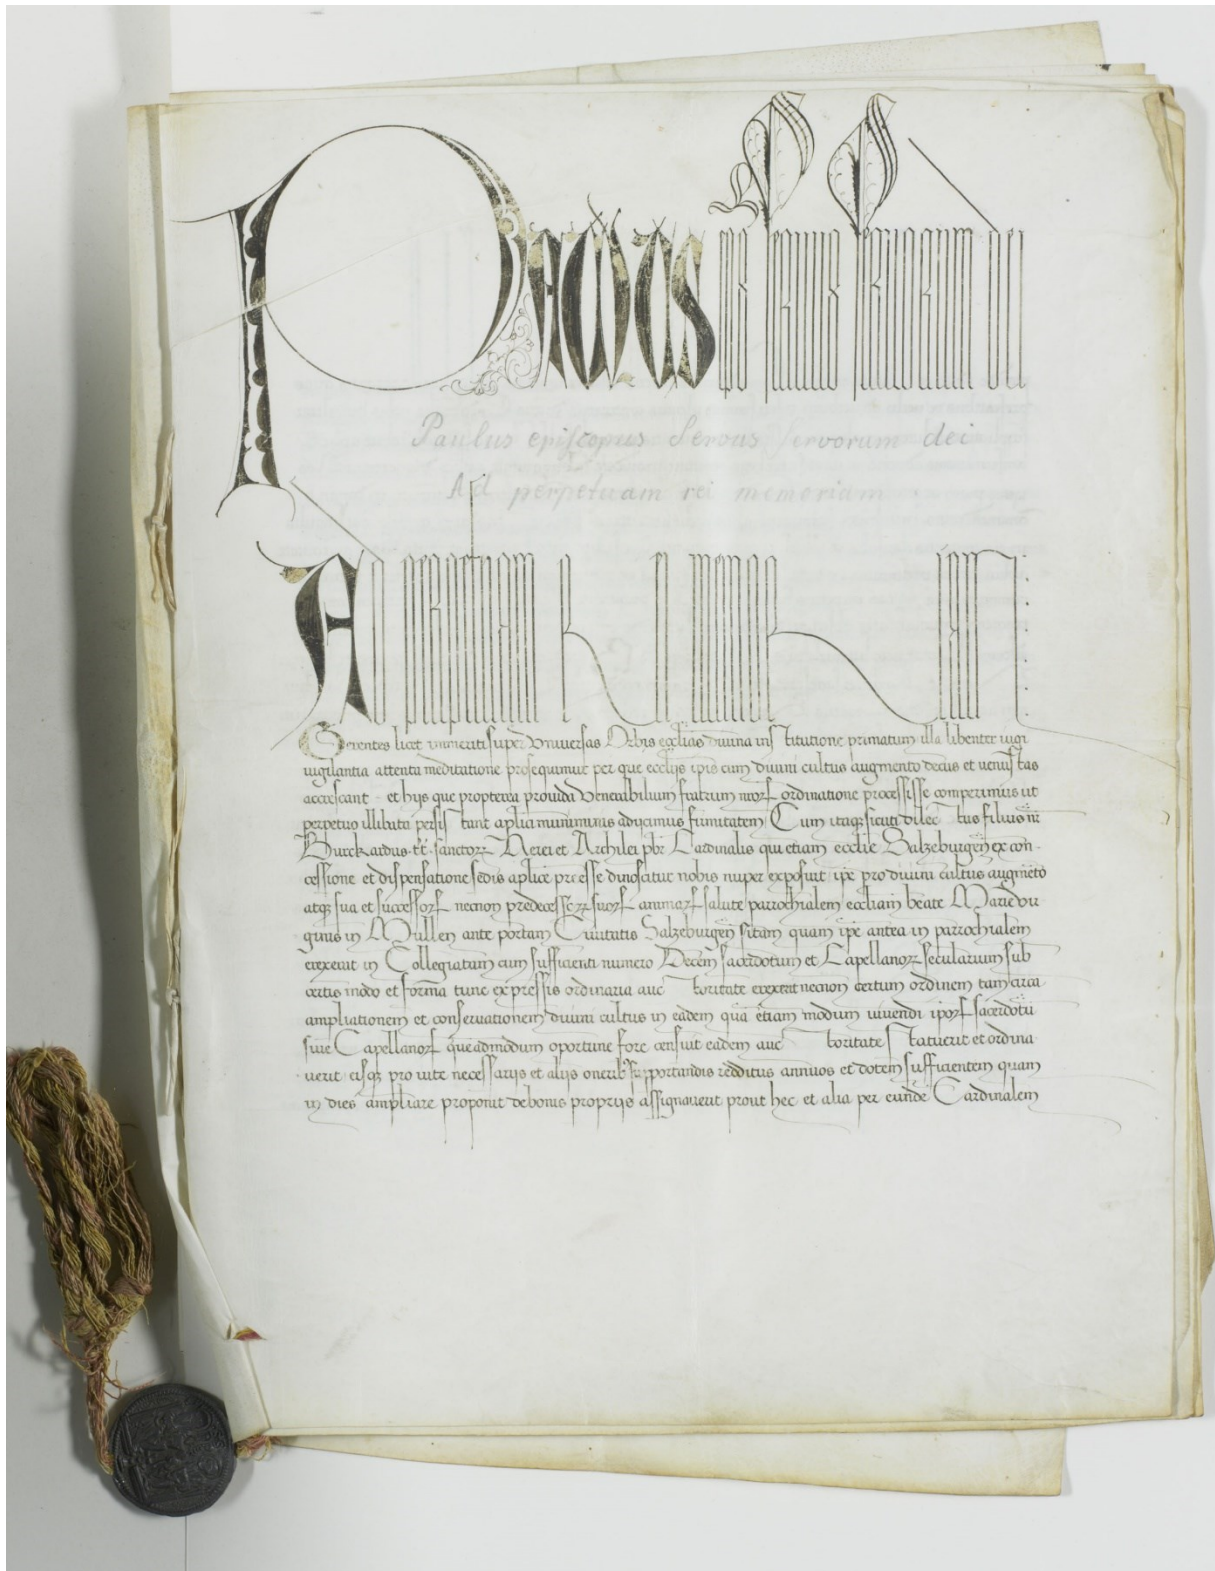 Paulus eps seruus seruorum dei
Paulus episcopus Servus servorum dei
Ad perpetuam rei memoriam
Ad perpetuam rei memoriam:
Gerentes licet immeriti super vniuersas Orbis ecclias diuina institutione primatum illa libenter iugi
uigilantia attenta meditatione prosequimur per que ecclijs ipis cum diuini cultus augmento decus et uenustas
accrescant et hijs que propterea prouida Venerabilium fratrum nrorꝝ ordinatione processisse comperimus ut
perpetuo illibata persistant aplica muniminis adijcimus firmitatem Cum itaqꝫ sicuti dilectus filius nr
Burckardus tt sanctorꝝ Nerei et Archilei pbr Cardinalis qui etiam ecclie Salzeburgen̄ ex con-
cessione et dispensatione sedis aplice preesse dinoscitur nobis nuper exposuit ipe pro diuini cultus augmēto
atqꝫ sua et successorꝝ necnon predecessorꝝ suorꝝ animarꝝ salute parrochialem eccliam beate Marie vir
ginis in Mullen ante portam Ciuitatis Salzeburgen̄ sitam quam ipe antea in parrochialem
erexerat in Collegiatam cum sufficienti numero Decem sacerdotum et Capellanorꝝ secularium sub
certis modo et forma tunc expressis ordinaria auctoritate erexerit necnon certum ordinem tam circa
ampliationem et conseruationem diuini cultus in eadem quā etiam modum uiuendi iporꝝ sacerdotū
siue Capellanorꝝ queadmodum oportune fore censuit eadem auctoritate statuerit et ordina
uerit eisqꝫ pro uite necessarijs et alijs oneribꝰ supportandis redditus annuos et dotem sufficientem quam
in dies ampliare proponit de bonis proprijs assignauerit prout hec et alia per eundē Cardinalem